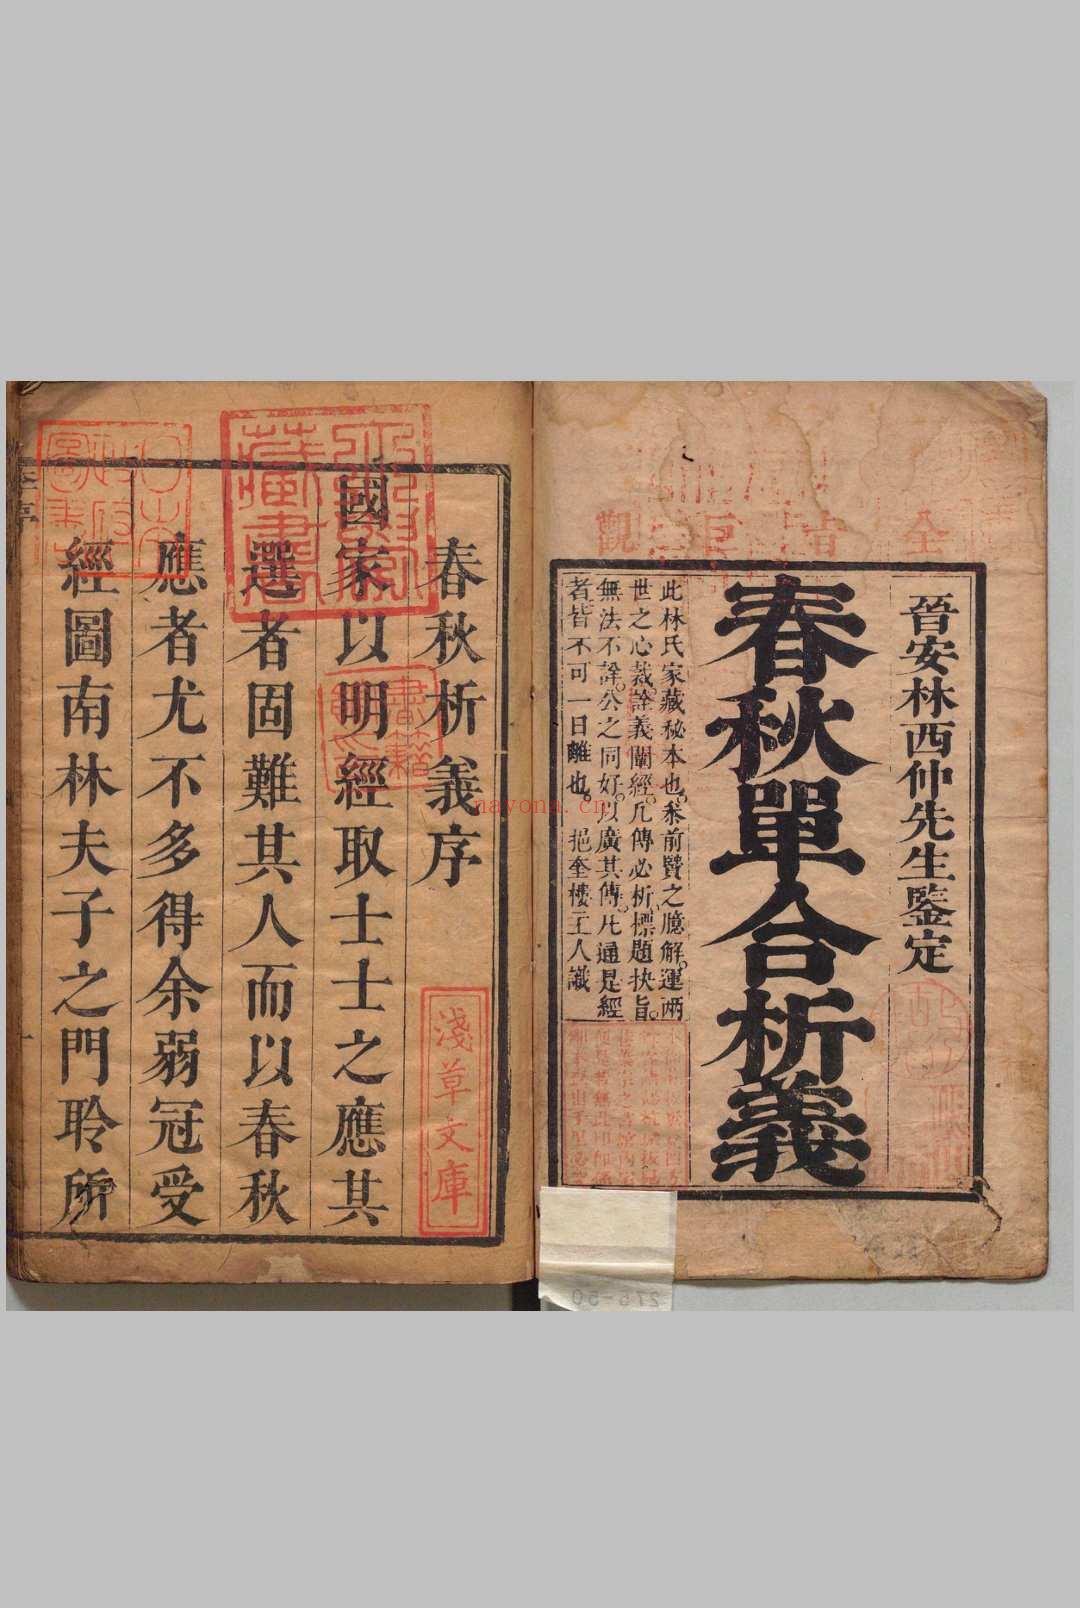 晉安林西仲先生鑒定
春秋單合析義
此林氏家藏秘本也。釆前賢之臆解。運兩
世之心裁。詮義闡經。凡傳必析。標題抉旨。
無法不詮。公之同好。以廣其傳。凡通是經
者皆不可一日離也。 挹奎樓主人識
全
觀
春秋析義序
國家以明經取士士之應其
選者固難其人而以春秋
應者尤不多得余弱冠受
經圖南林夫子之門聆所
藏書
書籍
淺草文庫
nayona.cn
276-50